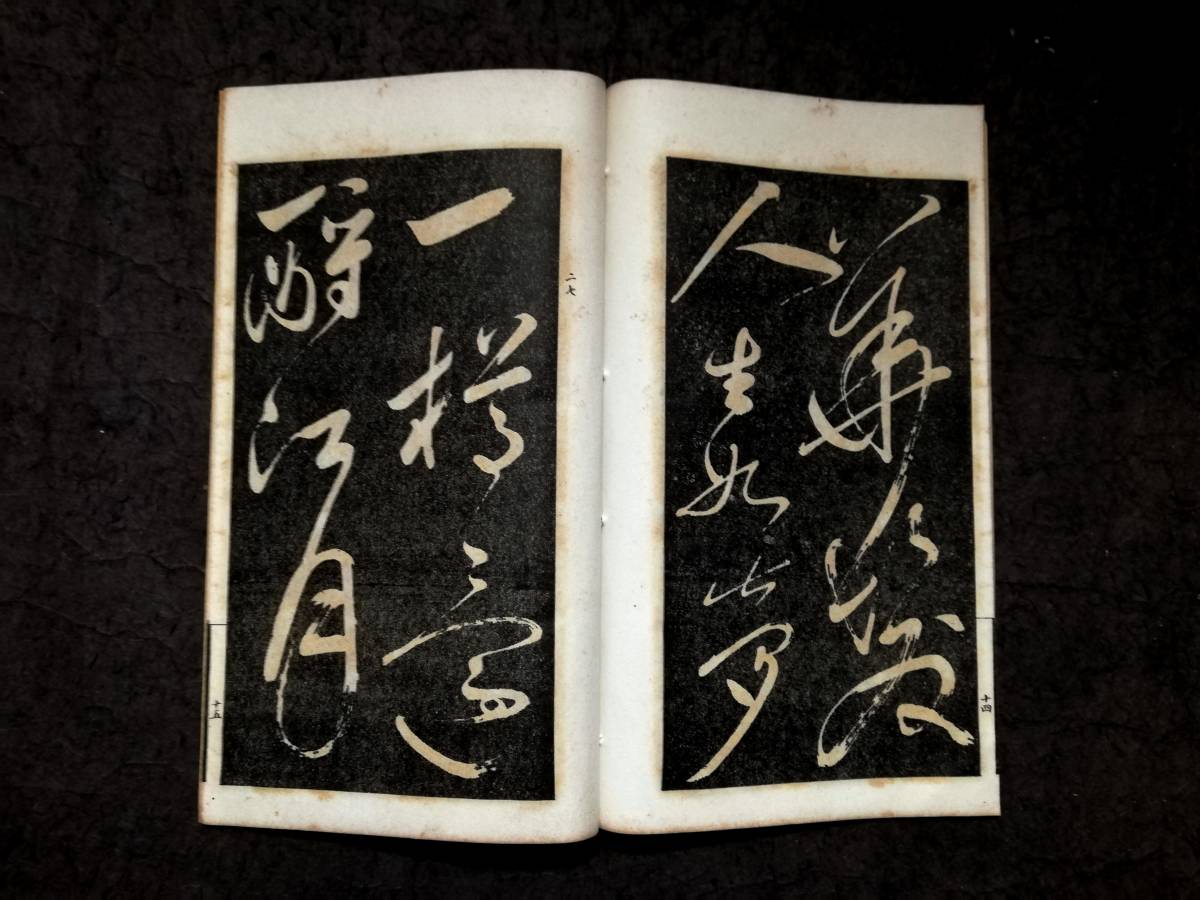 華髮
人生如夢
十四
二七
一樽還
酹江月
十五